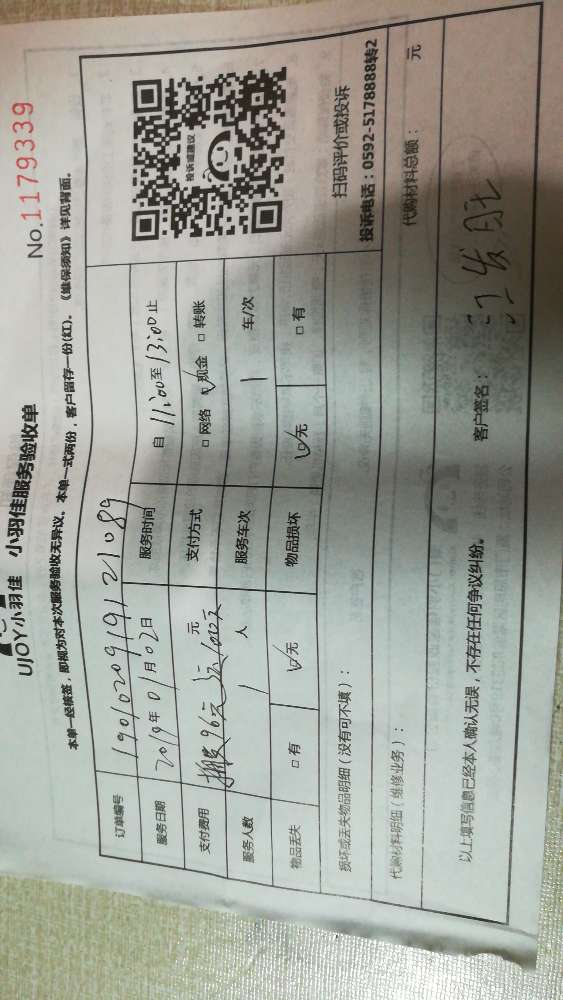 UJOY小羽佳 小羽佳服务验收单 No.1179339
本单一经核签,即视为对本次服务验收无异议。本单一式两份,客户留存一份(红)。《维保须知》详见背面。
订单编号 190102091912108
服务日期 2019年01月02日 服务时间 自 11:00 至 13:00 止
支付费用 96元 元 支付方式 □网络 ☑现金 □转账
服务人数 1 人 服务车次 1 车/次
物品丢失 □有 ☑无 物品损坏 ☑无 □有
投诉或建议
扫码评价或投诉
投诉电话:0592-5178888转2
损坏或丢失物品明细(没有可不填):
代购材料明细(维修业务): 代购材料总额: 元
以上填写信息已经本人确认无误,不存在任何争议纠纷。 客户签名: